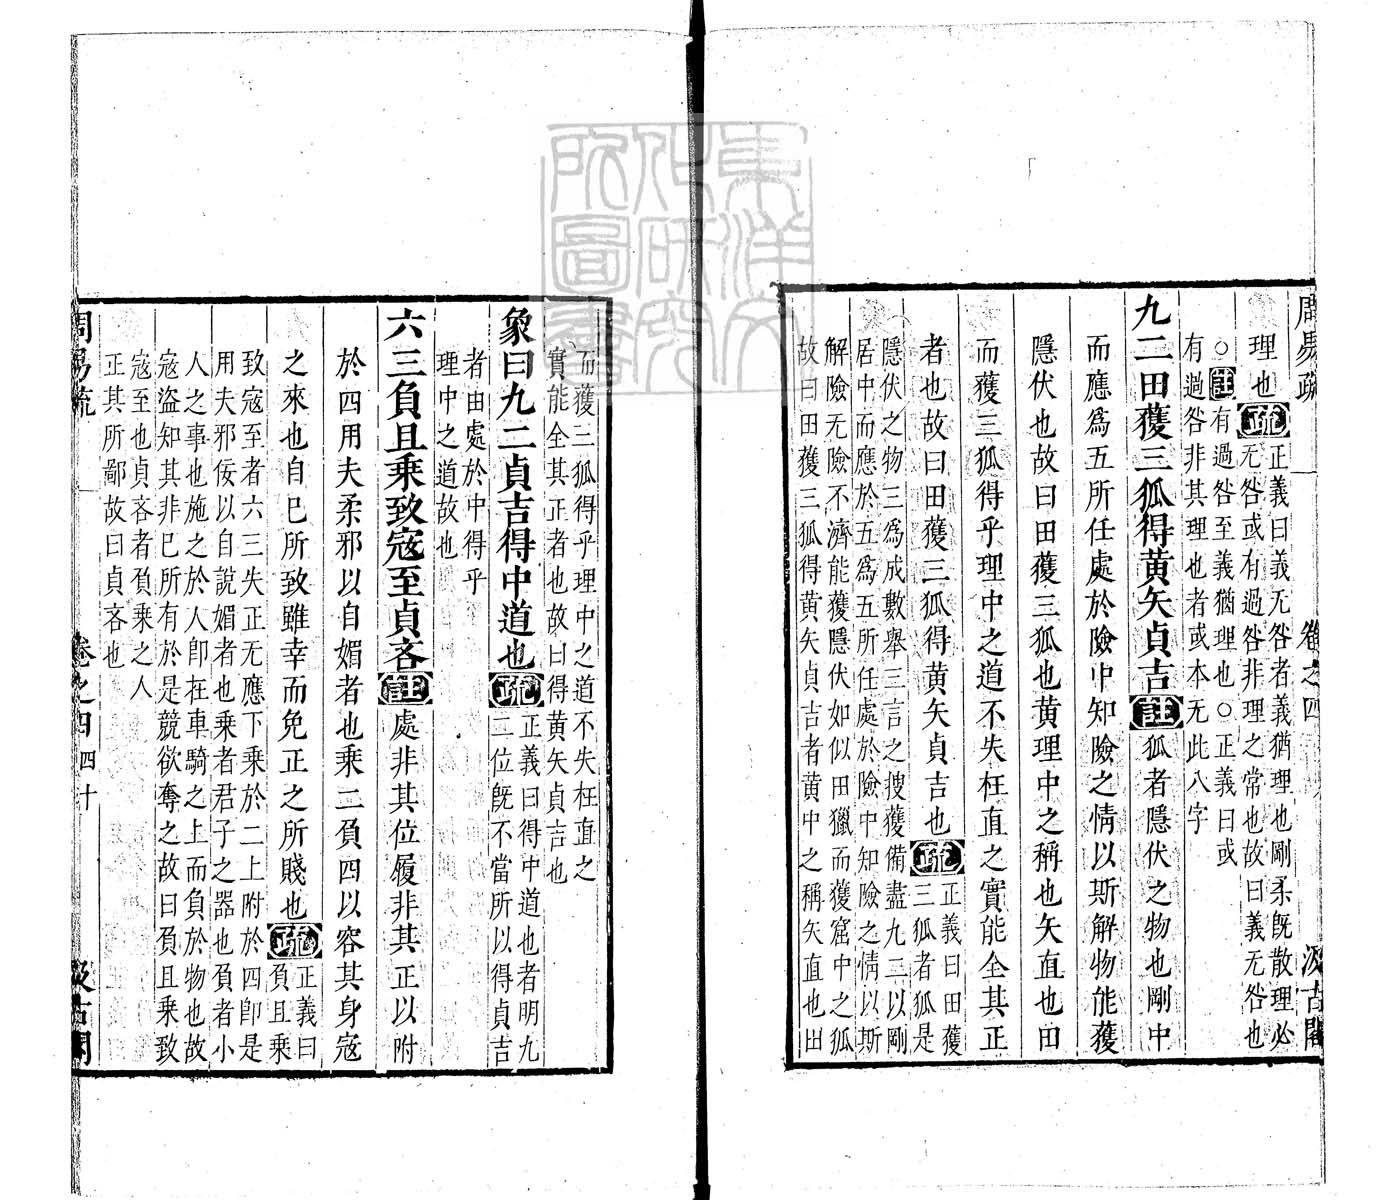 周易疏
卷之四
汲古閣
理也疏正義曰義无咎者義猶理也剛柔旣散理必
无咎或有過咎非理之常也故曰義无咎也
○註有過咎至義猶理也○正義曰或
有過咎非其理也者或本无此八字
九二田獲三狐得黃矢貞吉註狐者隱伏之物也剛中
而應爲五所任處於險中知險之情以斯解物能獲
隱伏也故曰田獲三狐也黃理中之稱也矢直也田
而獲三狐得乎理中之道不失枉直之實能全其正
者也故曰田獲三狐得黃矢貞吉也疏正義曰田獲
三狐者狐是
隱伏之物三爲成數舉三言之搜獲備盡九二以剛
居中而應於五爲五所任處於險中知險之情以斯
解險无險不濟能獲隱伏如似田獵而獲窟中之狐
故曰田獲三狐得黃矢貞吉者黃中之稱矢直也田
而獲三狐得乎理中之道不失枉直之
實能全其正者也故曰得黃矢貞吉也
象曰九二貞吉得中道也疏正義曰得中道也者明九
二位旣不當所以得貞吉
者由處於中得乎
理中之道故也
六三負且乘致寇至貞吝註處非其位履非其正以附
於四用夫柔邪以自媚者也乘二負四以容其身寇
之來也自巳所致雖幸而免正之所賤也疏正義曰
負且乘
致寇至者六三失正无應下乘於二上附於四卽是
用夫邪佞以自說媚者也乘者君子之器也負者小
人之事也施之於人卽在車騎之上而負於物也故
寇盜知其非巳所有於是競欲奪之故曰負且乘致
寇至也貞吝者負乘之人
正其所鄙故曰貞吝也
周易疏
卷之四
四十
汲古閣
東洋文
化研究
所圖書